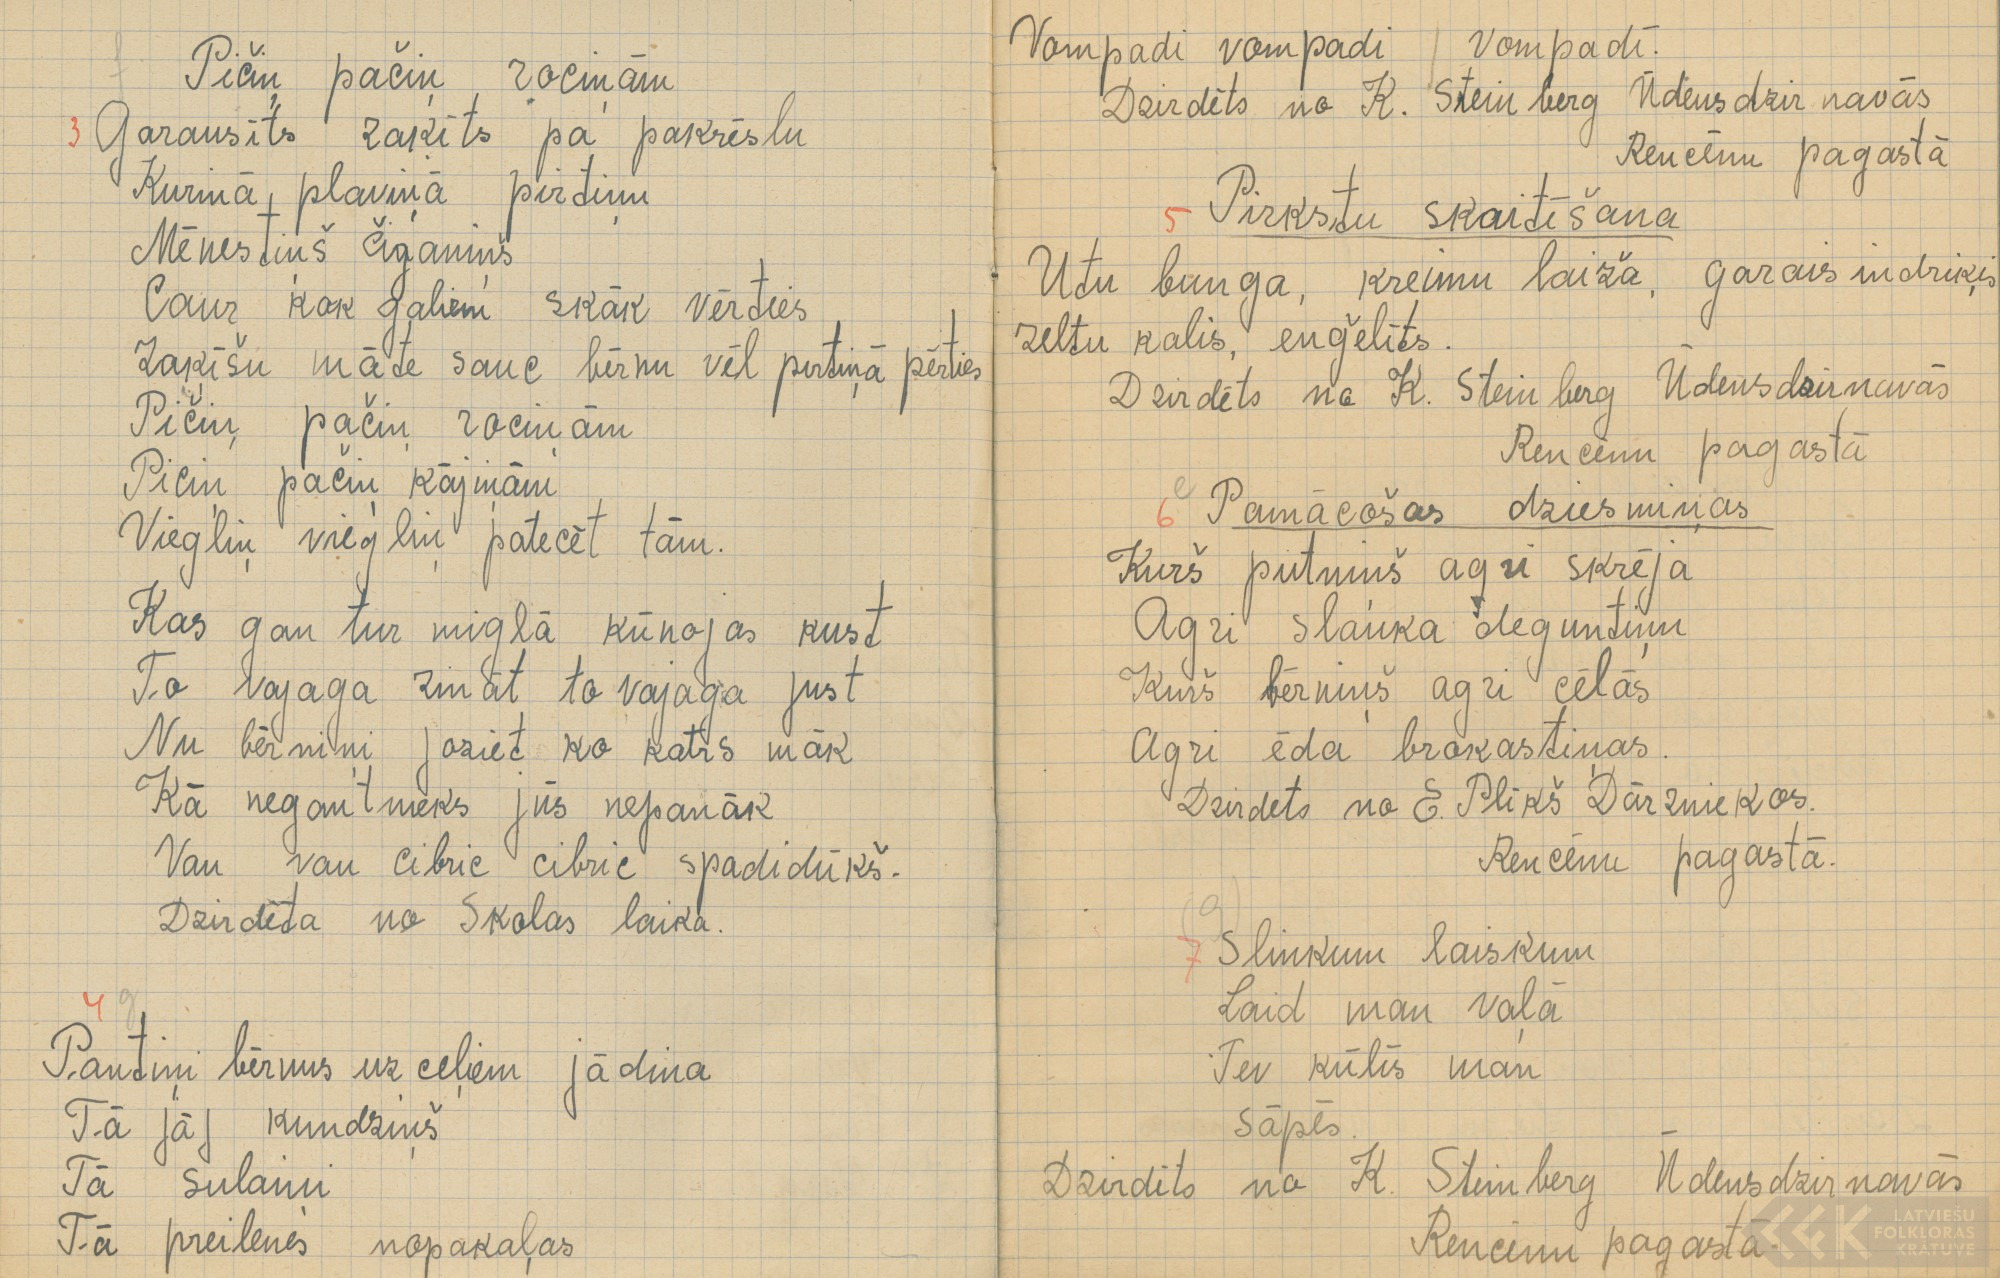 Pičiņ pačiņ rociņām
3 Garausīts zaķīts pa pakrēslu
Kurinā pļaviņā pirtiņu
Mēnestiņš čiganiņš
Caur kok galiem skāk vērties
Zaķīšu māte sauc bērnu vēl pirtiņā pērties
Pičiņ pačiņ rociņām
Piciņ pačiņ kājiņām
Viegliņ viegliņ patecēt tām.
Kas gan tur miglā kūņojas kust
To vajaga zināt to vajaga just
Nu bērniņi joziet ko katrs māk
Kā negantnieks jūs nepanāk
Van van cibric cibric spadidūkš.
Dzirdēta no Skolas laika.
4 g
Pantiņi bērnus uz ceļiem jādina
Tā jāj kundziņš
Tā sulaiņi
Tā preilenes nopakaļas
Vompadi vompadi vompadi.
Dzirdēts no K. Steinberg Ūdensdzirnavās
Rencēnu pagastā
5 Pirkstu skaitīšana
Utu bunga, kreimu laiža, garais indriķis
zeltu kalis, enģelīts.
Dzirdēts no K. Steinberg Ūdensdzirnavās
Rencēnu pagastā
e
6 Pamācošas dziesmiņas
Kurš putniņš agri skrēja
Agri slauka deguntiņu
Kurš bērniņš agri cēlās
Agri ēda brokastiņas.
Dzirdets no E. Plikš Dārzniekos.
Rencēnu pagastā.
(g)
7 Slinkum laiskum
Laid man vaļā
Tev kūlīs man
sāpēs.
Dzirdēts no K. Steinberg Ūdensdzirnavās
Rencēnu pagastā.
LATVIEŠU
FOLKLORAS
KRĀTUVE